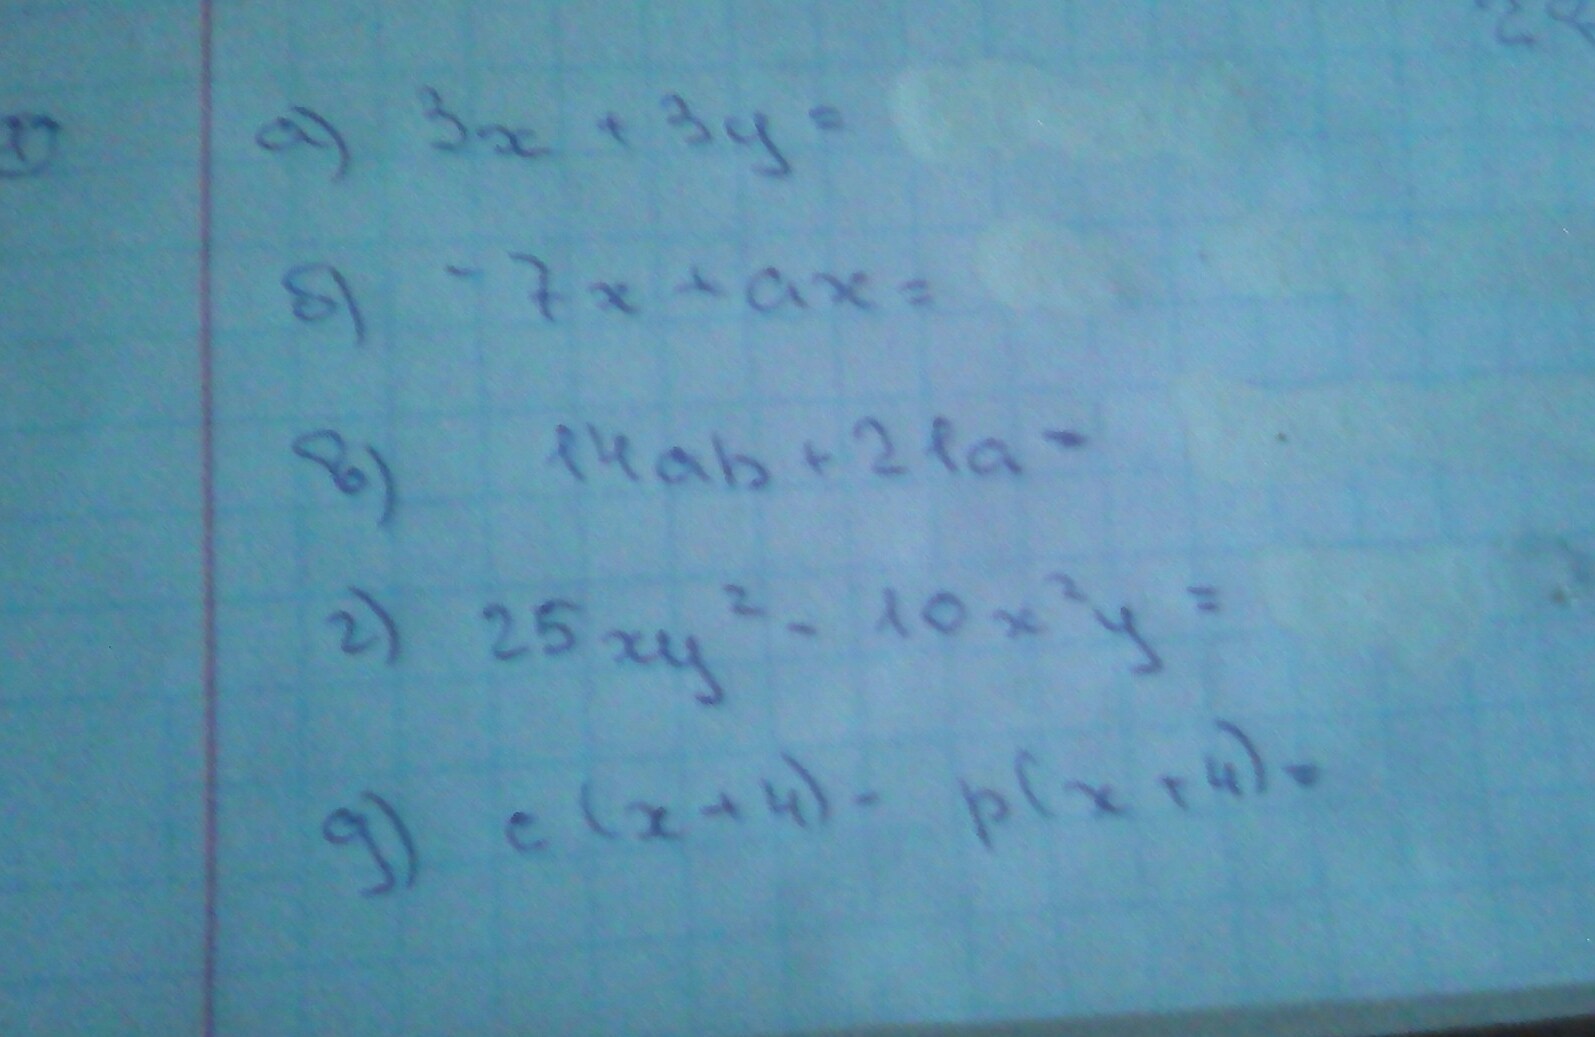 1) а) 3x + 3y =
б) -7x + ax =
в) 14ab + 21a =
г) 25xy² - 10x²y =
д) c(x+4) - p(x+4) =